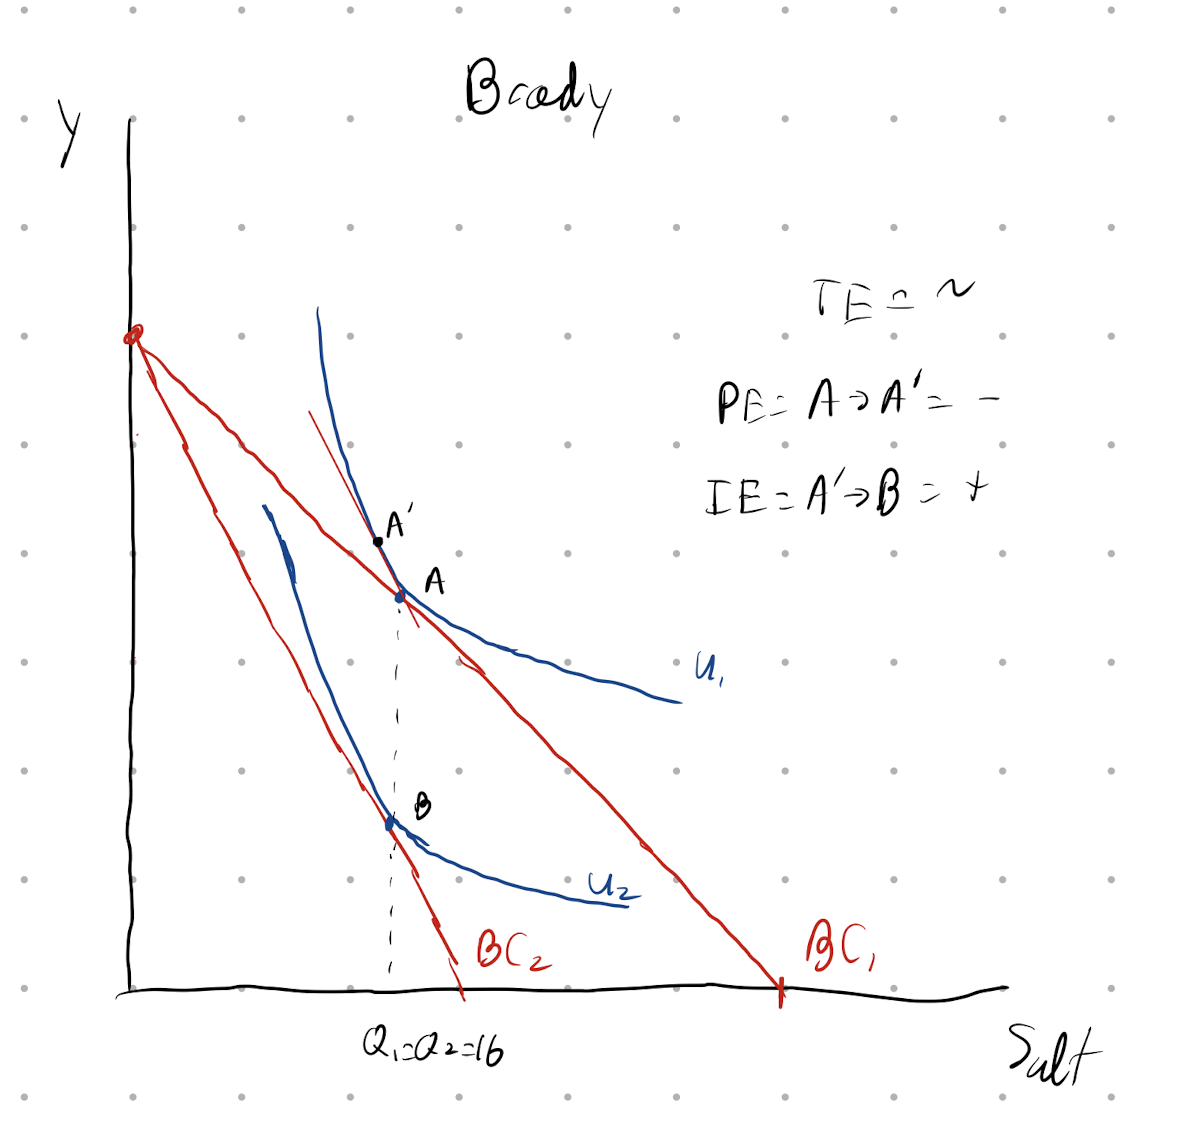 Brady
Y
TE = ~
PE = A → A' = -
IE = A' → B = +
A'
A
U₁
B
U₂
BC₂
BC₁
Q₁=Q₂=16
Salt